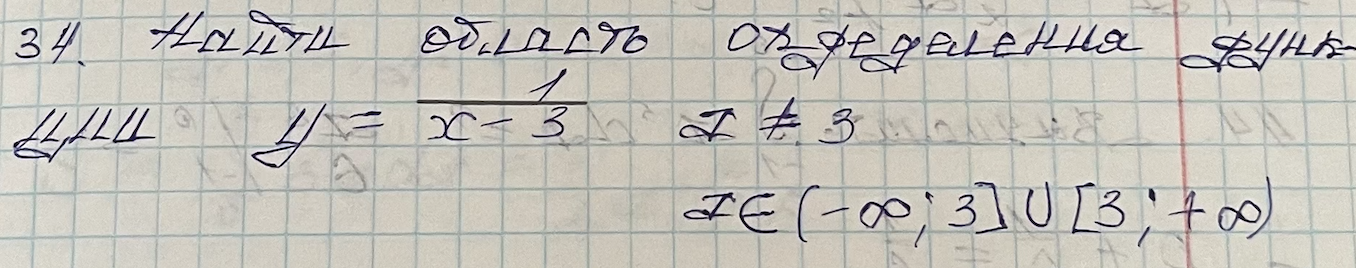 34. Найти область определения функ-
ции y = 1/(x - 3) x ≠ 3
x ∈ (-∞; 3] ∪ [3; +∞)